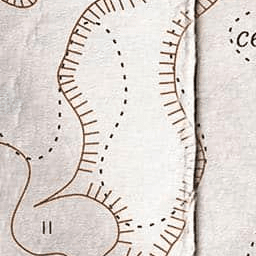 ce
II